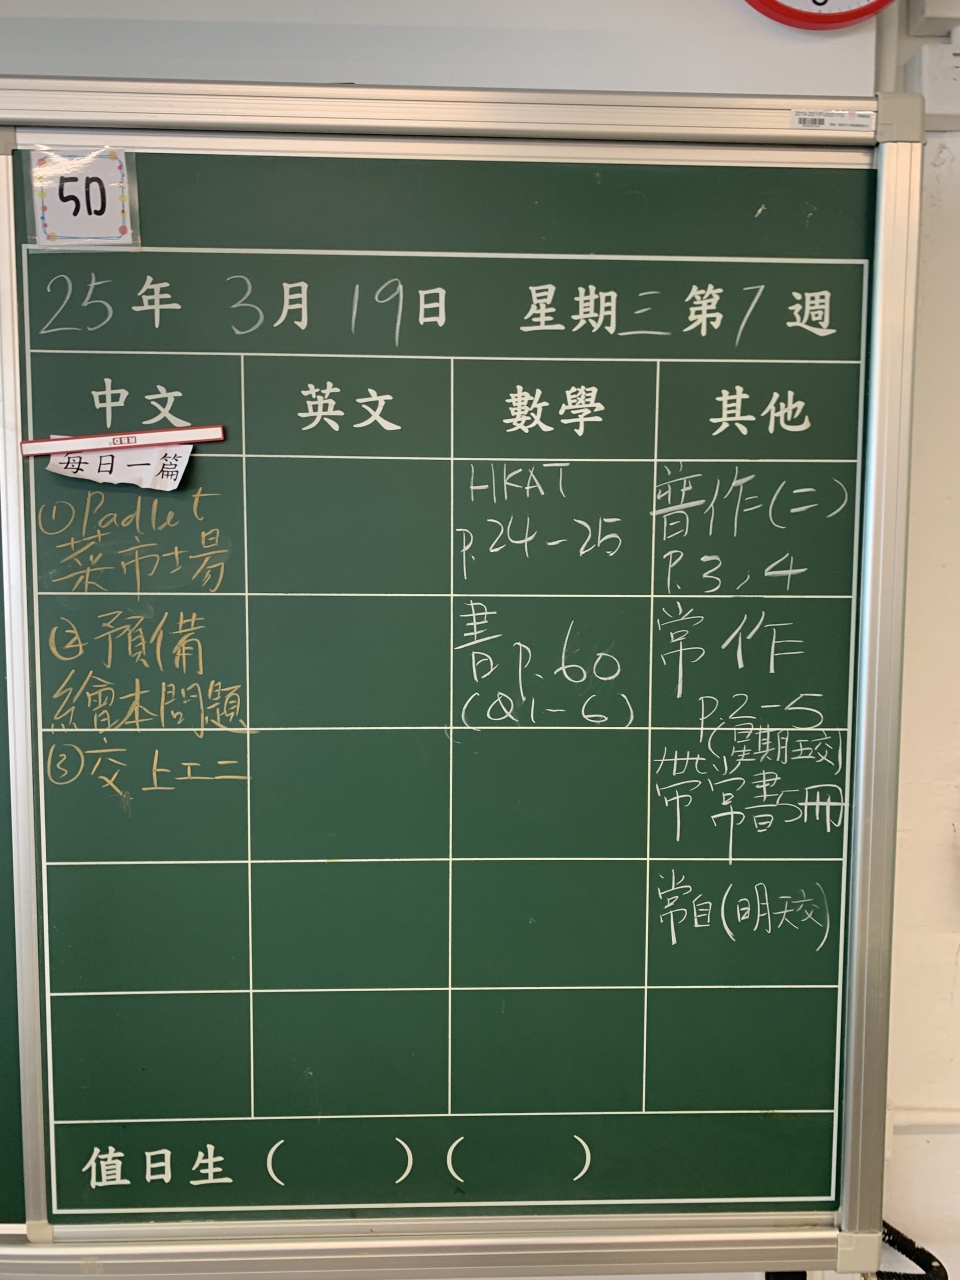 5D
25年 3月 19日 星期三 第7週
中文 英文 數學 其他
每日一篇
①Padlet
菜市場
②預備
繪本問題
③交上工二
HKAT
p.24-25
書p.60
(Q1-6)
普作(二)
P.3,4
常作
p.2-5
(星期五交)
帶常書5冊
常自(明天交)
值日生( )( )